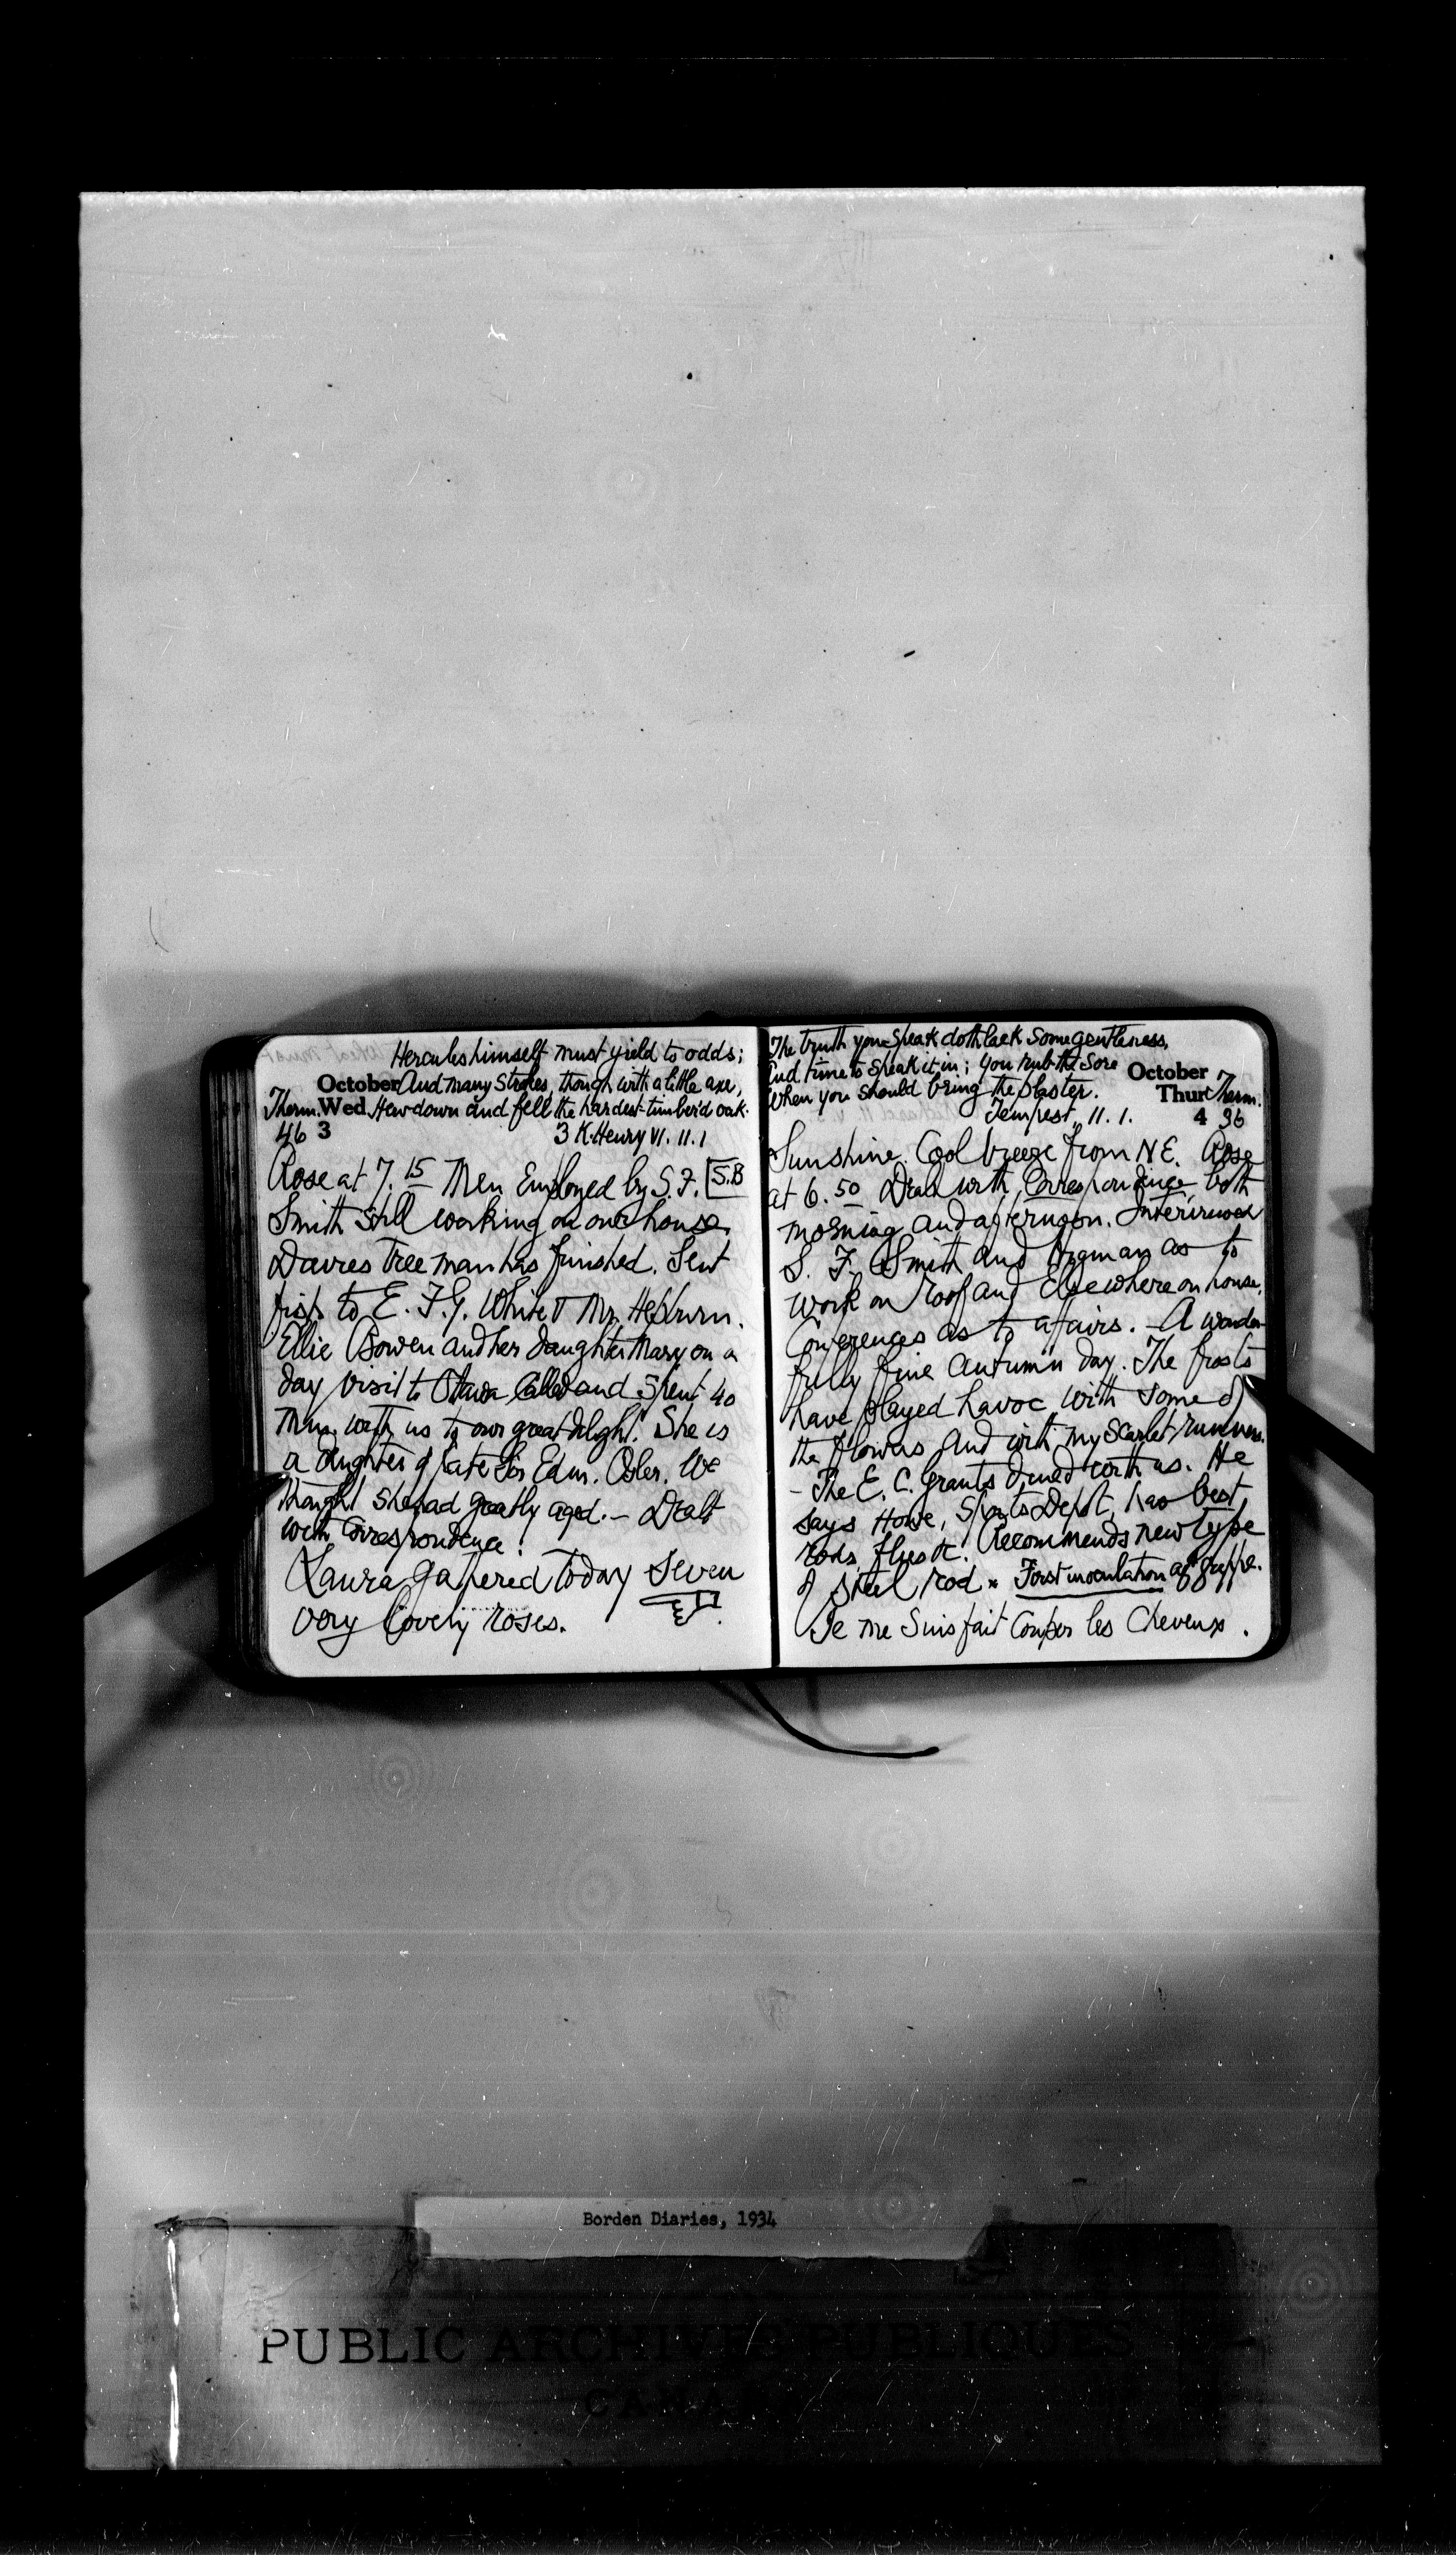 Hercules himself must yield to odds;
October And many Strokes, though with a little axe,
Therm. Wed. Hew down and fell the hardest-timber'd oak.
46 3 3 K. Henry VI. 11.1
Rose at 7.15 Men Employed by S.F. S.B
Smith Still working on our house.
Davies Tree man has finished. Sent
fish to E.F.G. White & Mr. Hepburn.
Ellie Bowen and her daughter Mary on a
day visit to Ottawa Called and Spent 40
Min. with us to our great delight. She is
a daughter of late Sir Edm. Osler. We
thought She had greatly aged. — Dealt
with Correspondence.
Laura gathered today Seven
very lovely roses.
The truth you Speak doth lack Some gentleness,
And time to Speak it in; You rub the Sore October
When you Should bring the plaster. Thur Therm.
Tempest, 11. 1. 4 36
Sunshine. Cool breeze from N E. Rose
at 6.50 Dealt with Correspondence, both
morning and afternoon. Interviewed
S. F. Smith and as to
work on Roof and Elsewhere on house.
Conferences as to affairs. — A wonder-
fully fine Autumn day. The frosts
have played havoc with Some of
the flowers and with my Scarlet runners.
— The E. C. Grants dined with us. He
says Howe, Sports Depot, has best
rods, flies &c. Recommends new type
of Steel rod First inoculation ag. grippe.
Je me Suis fait Couper les Cheveux.
Borden Diaries, 1934
PUBLIC ARCHIVES PUBLIQUES
CANADA